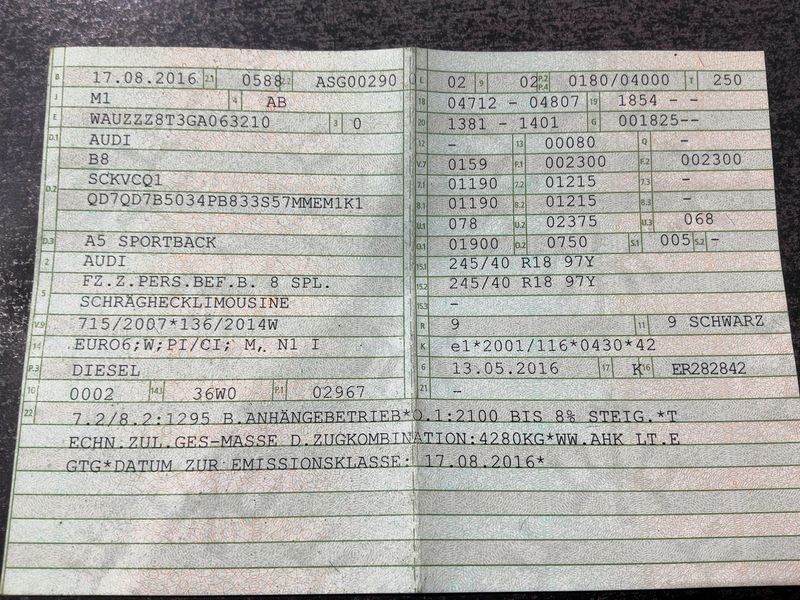 B 17.08.2016 2.1 0588 2.2 ASG00290 0
J M1 4 AB
E WAUZZZ8T3GA063210 3 0
D.1 AUDI
B8
D.2 SCKVCQ1
QD7QD7B5034PB833S57MMEM1K1
D.3 A5 SPORTBACK
2 AUDI
5 FZ.Z.PERS.BEF.B. 8 SPL.
SCHRÄGHECKLIMOUSINE
V.9 715/2007*136/2014W
14 EURO6;W;PI/CI; M, N1 I
P.3 DIESEL
10 0002 14.1 36W0 P.1 02967
L 02 9 02 P.2 P.4 0180/04000 T 250
18 04712 - 04807 19 1854 - -
20 1381 - 1401 G 001825--
12 - 13 00080 Q -
V.7 0159 F.1 002300 F.2 002300
7.1 01190 7.2 01215 7.3 -
8.1 01190 8.2 01215 8.3 -
U.1 078 U.2 02375 U.3 068
O.1 01900 O.2 0750 S.1 005 S.2 -
15.1 245/40 R18 97Y
15.2 245/40 R18 97Y
15.3 -
R 9 11 9 SCHWARZ
K e1*2001/116*0430*42
6 13.05.2016 17 K 16 ER282842
21 -
22 7.2/8.2:1295 B.ANHÄNGEBETRIEB*O.1:2100 BIS 8% STEIG.*T
ECHN.ZUL.GES-MASSE D.ZUGKOMBINATION:4280KG*WW.AHK LT.E
GTG*DATUM ZUR EMISSIONSKLASSE: 17.08.2016*